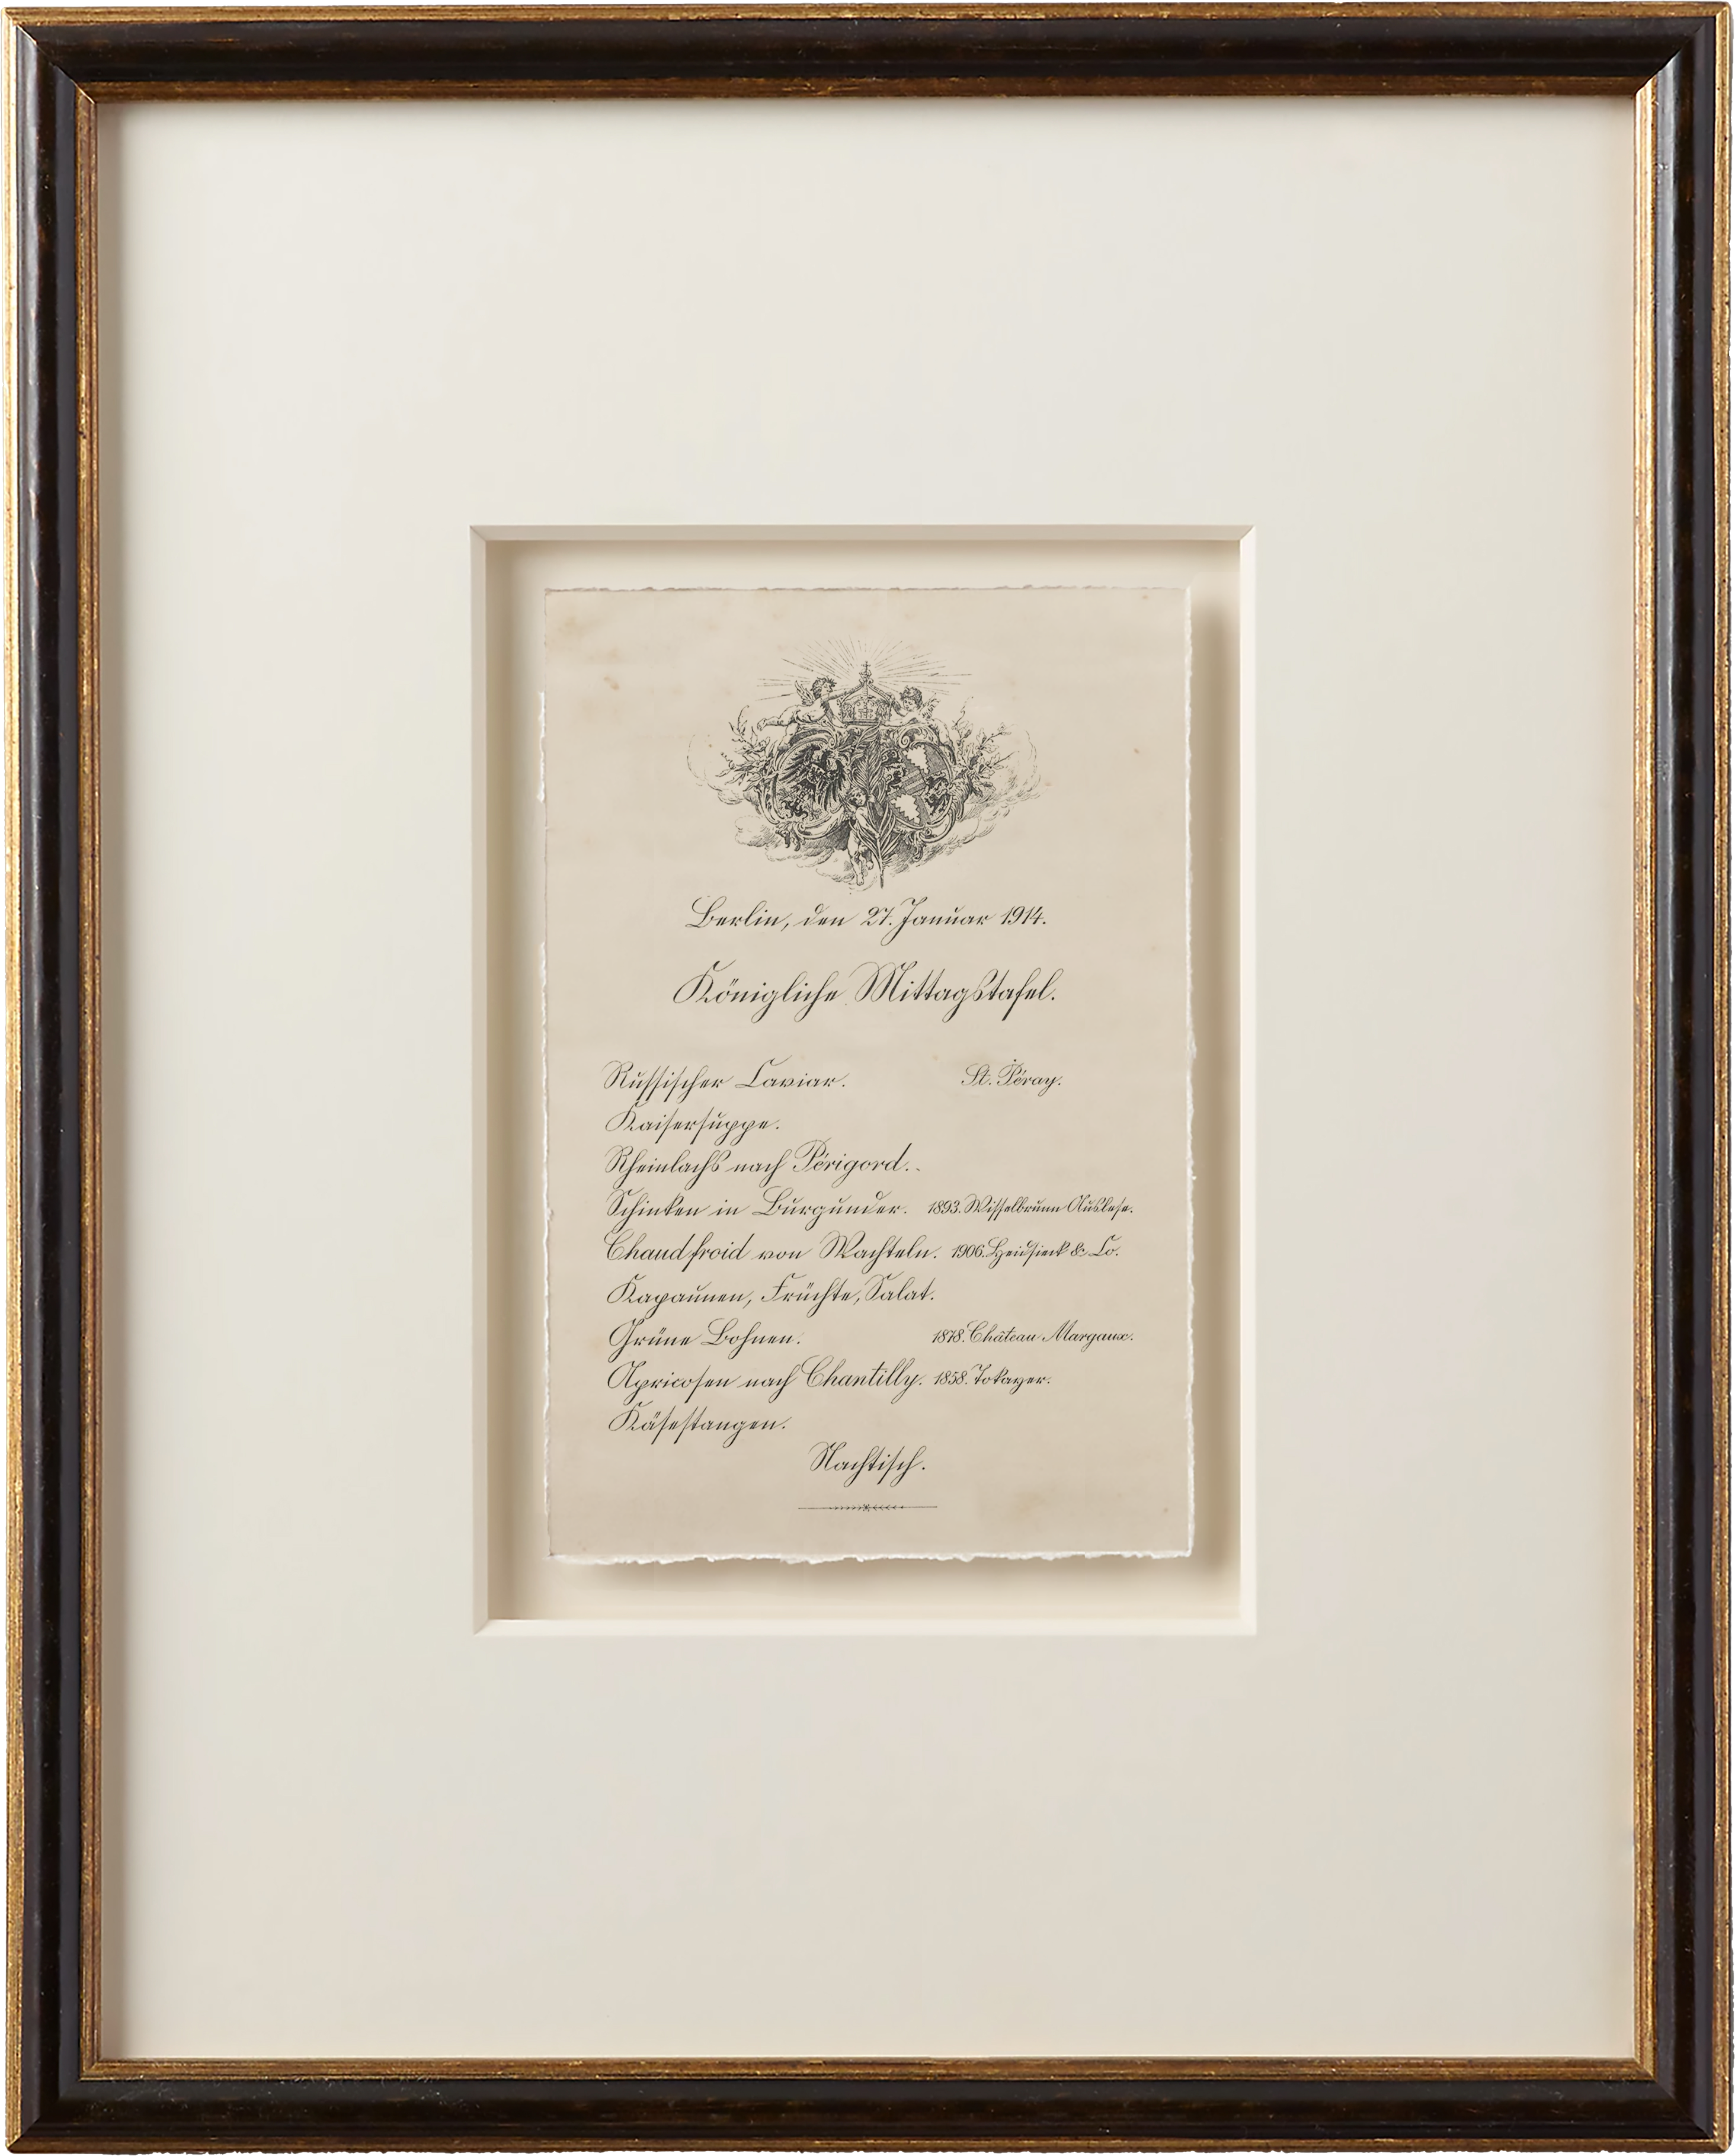 Berlin, den 27. Januar 1914.
Königliche Mittagstafel.
Russischer Caviar. St. Péray.
Kaisersuppe.
Rheinlachs nach Périgord..
Schinken in Burgunder. 1893. Wisselbrunn Auslese.
Chaudfroid von Wachteln. 1906. Heidsieck & Co.
Kapaunen, Früchte, Salat.
Grüne Bohnen. 1878. Château Margaux.
Apricosen nach Chantilly. 1858. Tokayer.
Käsestangen.
Nachtisch.